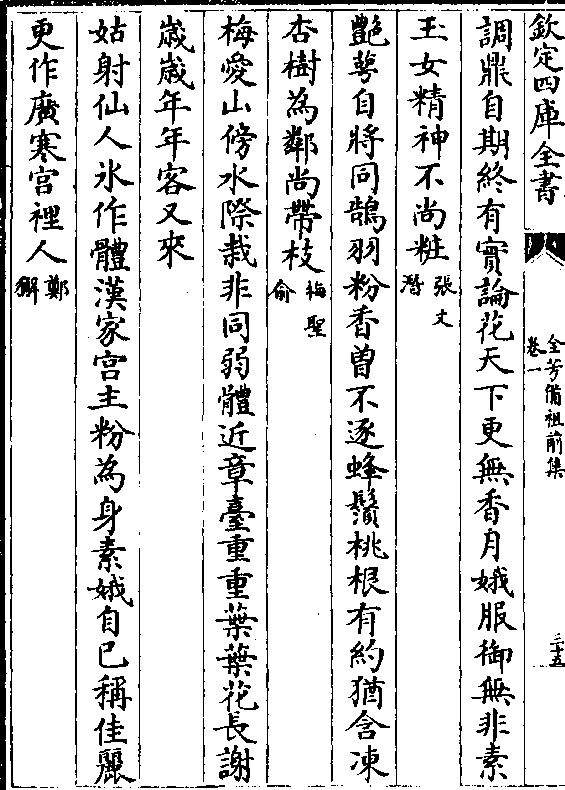 欽定四庫全書
全芳備祖前集
卷一
三十五
調鼎自期終有實論花天下更無香月娥服御無非素
玉女精神不尚粧張文潛
艶萼自將同鵠羽粉香曽不逐蜂鬚桃根有約猶含凍
杏樹為鄰尚帶枝梅聖俞
梅愛山傍水際栽非同弱體近章臺重重葉葉花長謝
歳歳年年客又來
姑射仙人氷作體漢家宫主粉為身素娥自已稱佳麗
更作廣寒宫裡人鄭獬